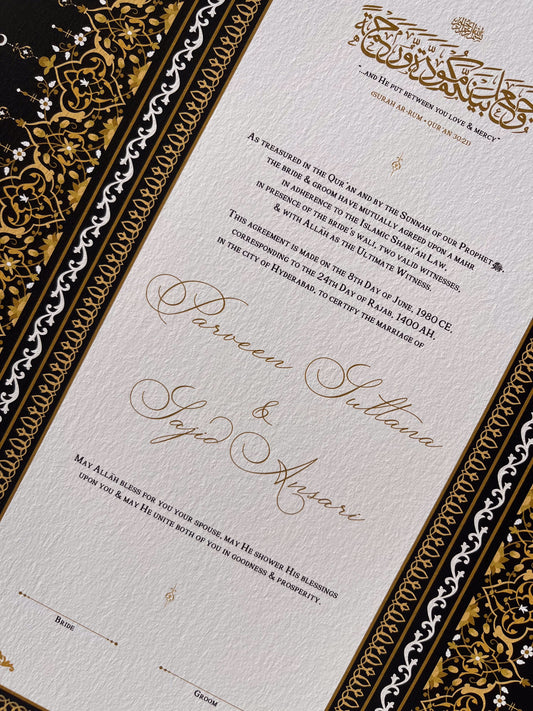 وَجَعَلَ بَيْنَكُم مَّوَدَّةً وَرَحْمَةً
"...and He put between you love & mercy"
(Surah Ar-Rum • Qur'an 30:21)
As treasured in the Qur'an and by the Sunnah of our Prophet ﷺ,
the bride & groom have mutually agreed upon a mahr
in adherence to the Islamic Shari'ah Law,
in presence of the bride's wali, two valid witnesses,
& with Allah as the Ultimate Witness.
This agreement is made on the 8th Day of June, 1980 CE,
corresponding to the 24th Day of Rajab, 1400 AH,
in the city of Hyderabad, to certify the marriage of
Parveen Sultana
&
Sajid Ansari
May Allāh bless for you your spouse, may He shower His blessings
upon you & may He unite both of you in goodness & prosperity.
Bride
Groom